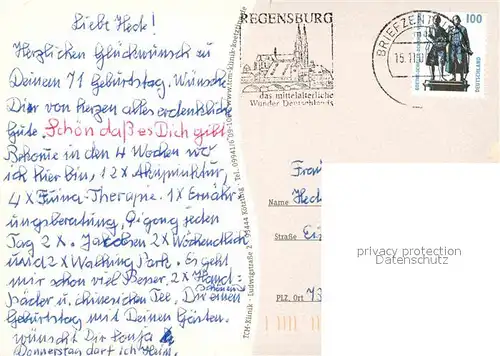 Liebe Heck!
Herzlichen Glückwunsch zu
Deinem 71 Geburtstag. Wünsche
Dir von Herzen alles erdenkliche
Gute. Schön daß es Dich gibt
Bekome in den 4 Wochen wo
ich hier bin, 12 x Akupunktur,
4 x Tuina-Therapie. 1 x Ernähr
ungsberatung, Qigong jeden
Tag 2 x. 2 x Wöchendlich
und 2 x Walking Park. Es geht
mir schon viel Besser. 2 x Hand
bäder u. chinesischen Tee. Dir einen
schönen
Geburtstag mit Deinen Gästen.
wünscht Dir
Donnerstag darf ich Heim.
TCM-Klinik · Ludwigstraße 2 · 93444 Kötzting · Tel. 09941/6
www.tcm-klinik-koetzting.de
REGENSBURG
das mittelalterliche
Wunder Deutschlands
BRIEFZENT
15.11
100
DEUTSCHLAND
Frau
Name Heck
Straße
PLZ, Ort 73
privacy protection
Datenschutz